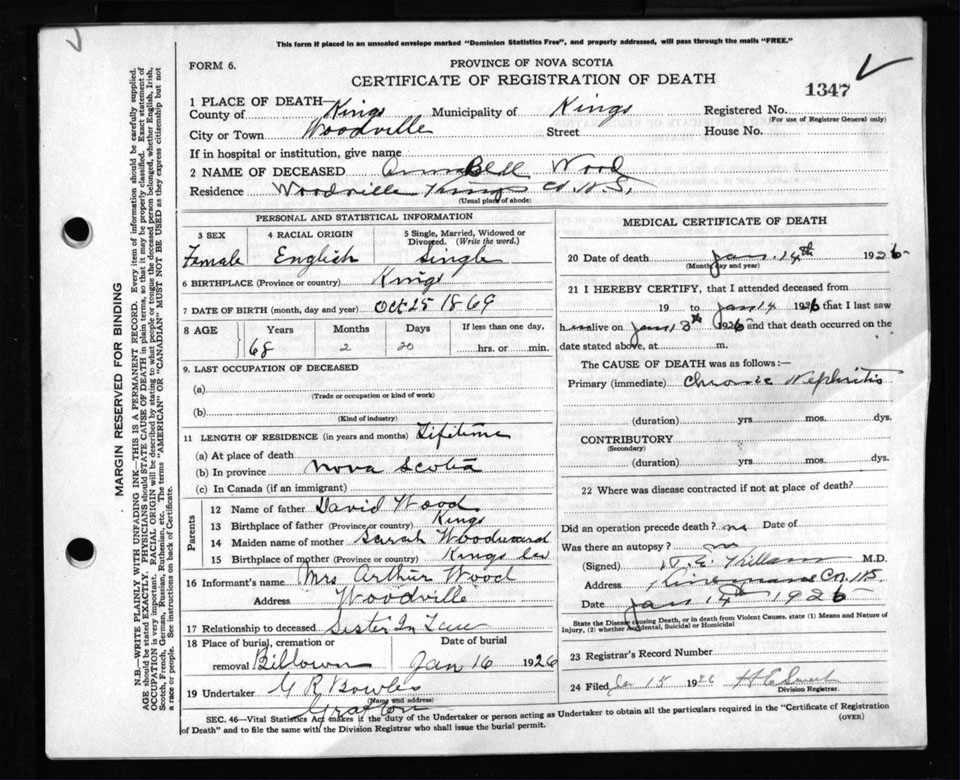 This form if placed in an unsealed envelope marked "Dominion Statistics Free", and properly addressed, will pass through the mails "FREE."
FORM 6.
PROVINCE OF NOVA SCOTIA
CERTIFICATE OF REGISTRATION OF DEATH
1347
1 PLACE OF DEATH—
County of Kings Municipality of Kings Registered No.
(For use of Registrar General only)
City or Town Woodville Street House No.
If in hospital or institution, give name
2 NAME OF DECEASED Wood
Residence Woodville Kings Co N.S.
(Usual place of abode)
PERSONAL AND STATISTICAL INFORMATION
3 SEX 4 RACIAL ORIGIN 5 Single, Married, Widowed or Divorced. (Write the word.)
Female English Single
6 BIRTHPLACE (Province or country) Kings
7 DATE OF BIRTH (month, day and year) Oct 25 1869
8 AGE Years Months Days If less than one day,
68 2 20 hrs. or min.
9. LAST OCCUPATION OF DECEASED
(a)
(Trade or occupation or kind of work)
(b)
(Kind of industry)
11 LENGTH OF RESIDENCE (in years and months) Lifetime
(a) At place of death
(b) In province Nova Scotia
(c) In Canada (if an immigrant)
Parents
12 Name of father David Wood
13 Birthplace of father (Province or country) Kings
14 Maiden name of mother Sarah
15 Birthplace of mother (Province or country) Kings Co
16 Informant's name Mrs Arthur Wood
Address Woodville
17 Relationship to deceased Sister In Law
18 Place of burial, cremation or Date of burial
removal Billtown Jan 16 1926
19 Undertaker G R Bowles
(Name and address)
Grafton
MEDICAL CERTIFICATE OF DEATH
20 Date of death Jan. 14th 1926
(Month, day and year)
21 I HEREBY CERTIFY, that I attended deceased from
19 to Jan 14 1926 that I last saw
h alive on Jan 13th 1926 and that death occurred on the
date stated above, at m.
The CAUSE OF DEATH was as follows:—
Primary (immediate) Chronic Nephritis
(duration) yrs. mos. dys.
CONTRIBUTORY
(Secondary)
(duration) yrs. mos. dys.
22 Where was disease contracted if not at place of death?
Did an operation precede death? no Date of
Was there an autopsy? no
(Signed) M.D.
Address Co. N.S.
Date Jan 14th 1926
State the Disease causing Death, or in death from Violent Causes. state (1) Means and Nature of
Injury, (2) whether Accidental, Suicidal or Homicidal
23 Registrar's Record Number
24 Filed Jan 15 1926
Division Registrar.
SEC. 46—Vital Statistics Act makes it the duty of the Undertaker or person acting as Undertaker to obtain all the particulars required in the "Certificate of Registration
of Death" and to file the same with the Division Registrar who shall issue the burial permit.
(OVER)
MARGIN RESERVED FOR BINDING
N.B.—WRITE PLAINLY WITH UNFADING INK—THIS IS A PERMANENT RECORD. Every item of information should be carefully supplied.
AGE should be stated EXACTLY. PHYSICIANS should STATE CAUSE OF DEATH in plain terms, so that it may be properly classified. Exact statement of
OCCUPATION is very important. RACIAL ORIGIN will be described by stating to what people or tongue the deceased person belonged, whether English, Irish,
Scotch, French, German, Russian, Ruthenian, etc. The terms "AMERICAN" OR "CANADIAN" MUST NOT BE USED as they express citizenship but not
a race or people. See instructions on back of Certificate.